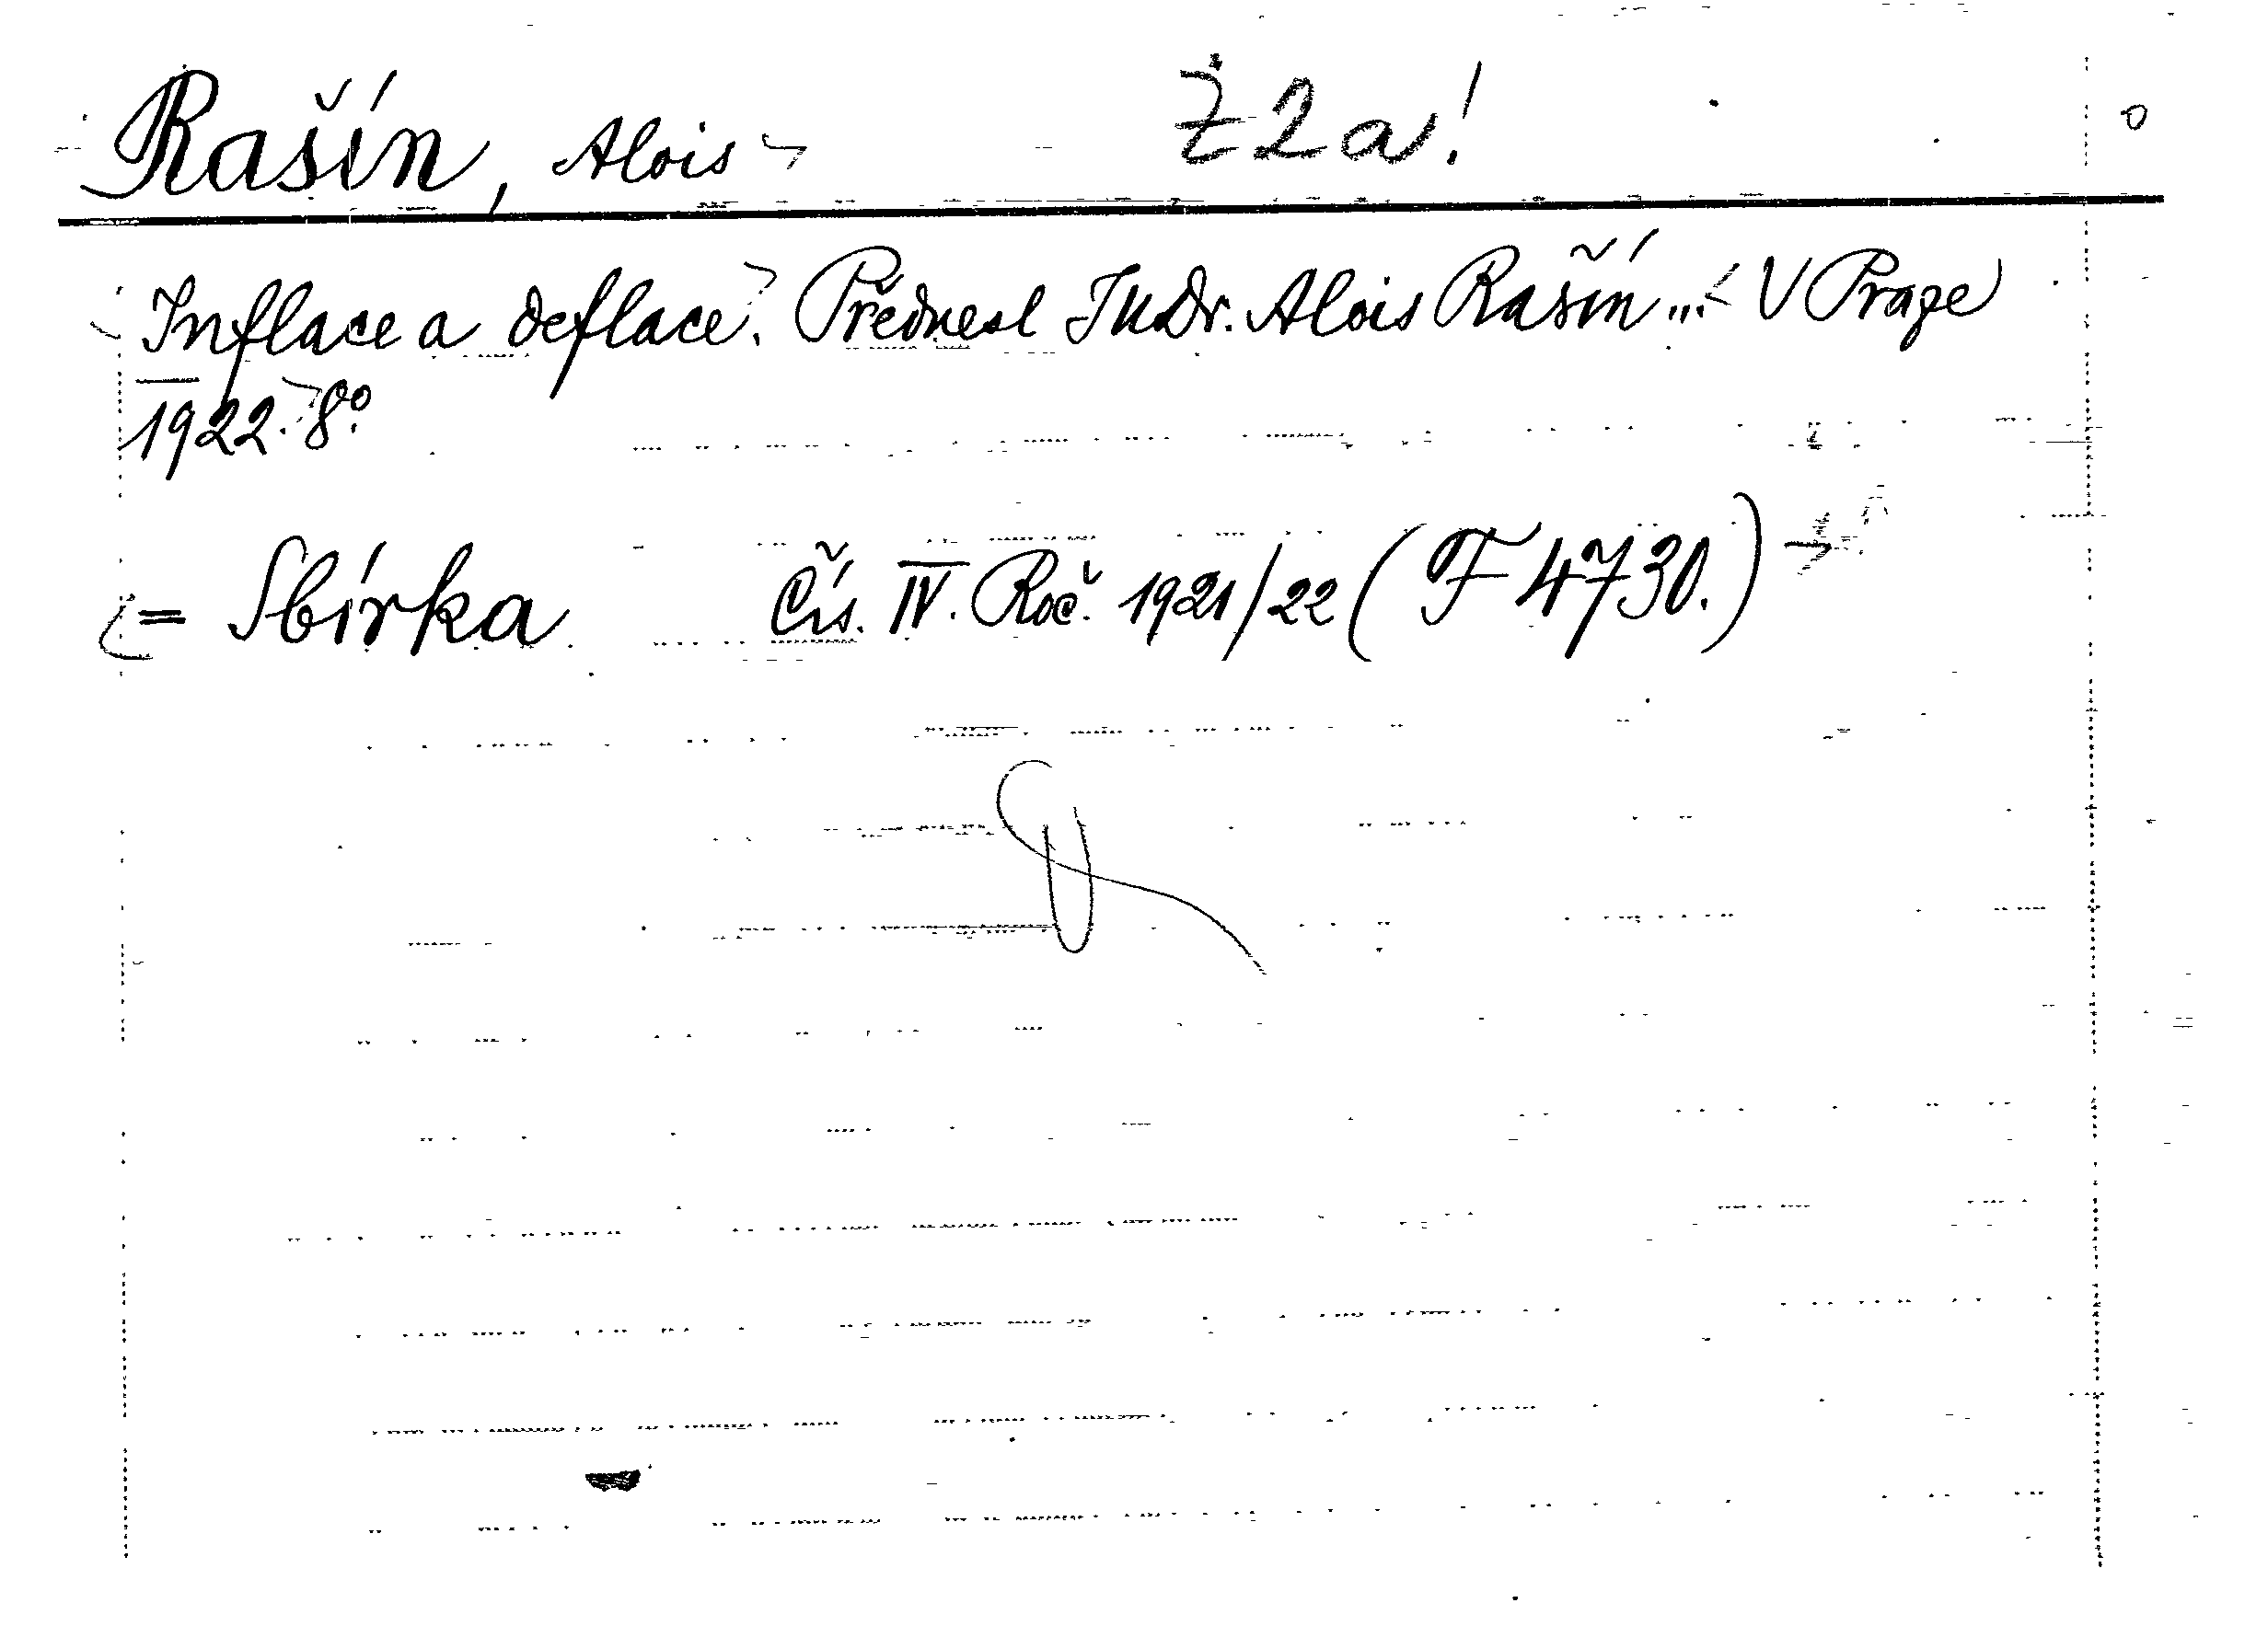 Rašín, Alois Ž2a!
Inflace a deflace. Přednesl JUDr. Alois Rašín ... V Praze
1922. 8º.
= Sbírka Čís. IV. Roč. 1921/22 (F 4730.)